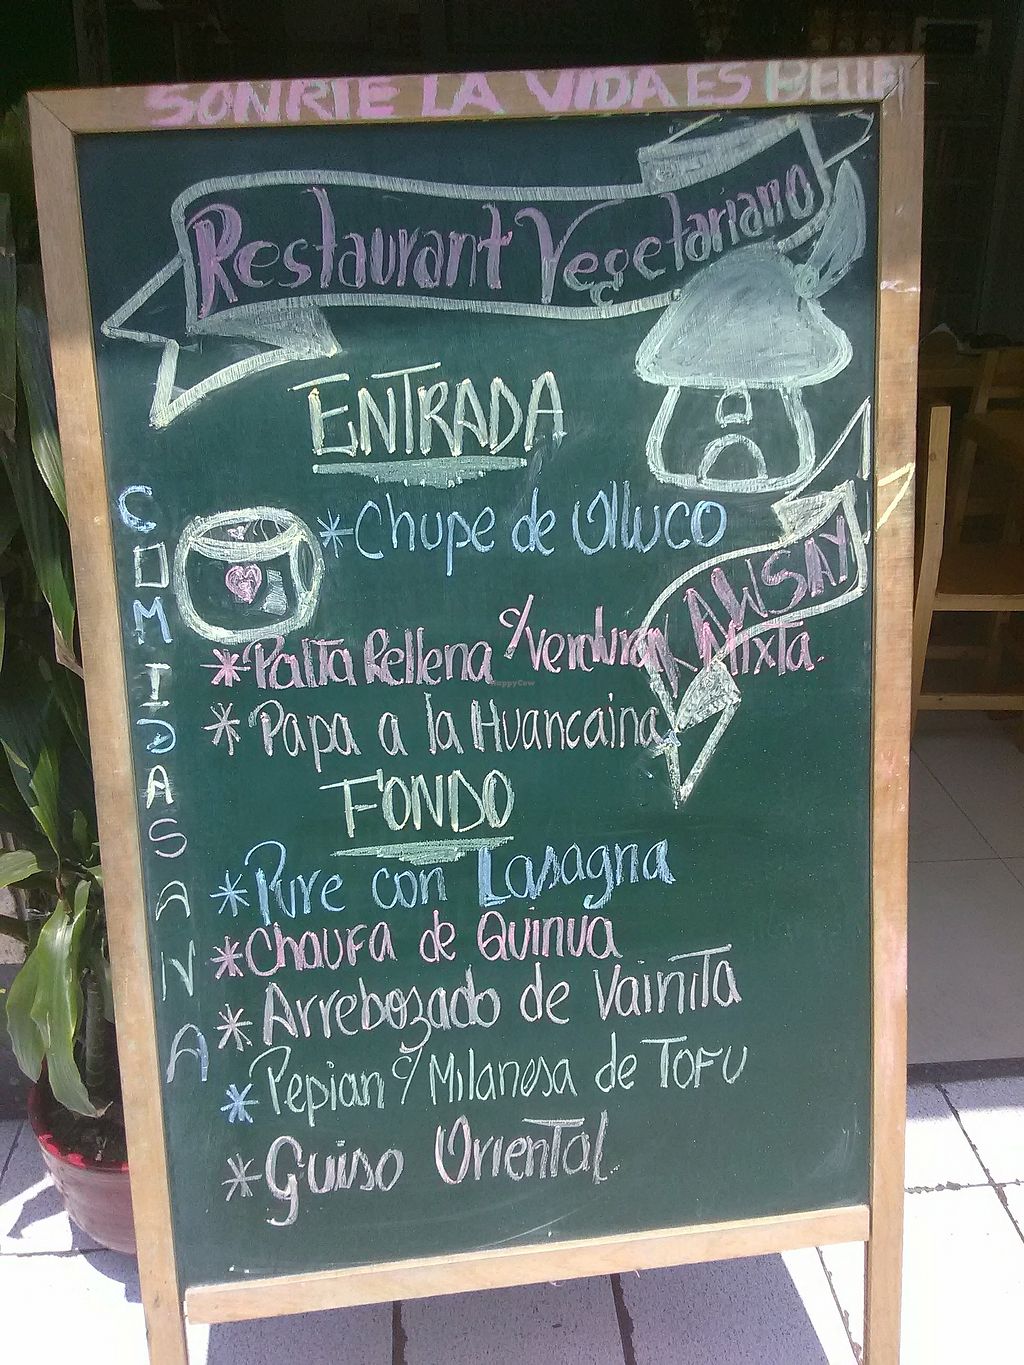 SONRIE LA VIDA ES BELLA
Restaurant Vegetariano
KAWSAY
ENTRADA
*Chupe de Olluco
*Palta Rellena c/verdura Mixta.
*Papa a la Huancaina
FONDO
*Pure con Lasagna
*Chaufa de Quinua
*Arrebozado de Vainita
*Pepian c/ Milanesa de TOFU
*Guiso Oriental
COMIDA SANA
HappyCow